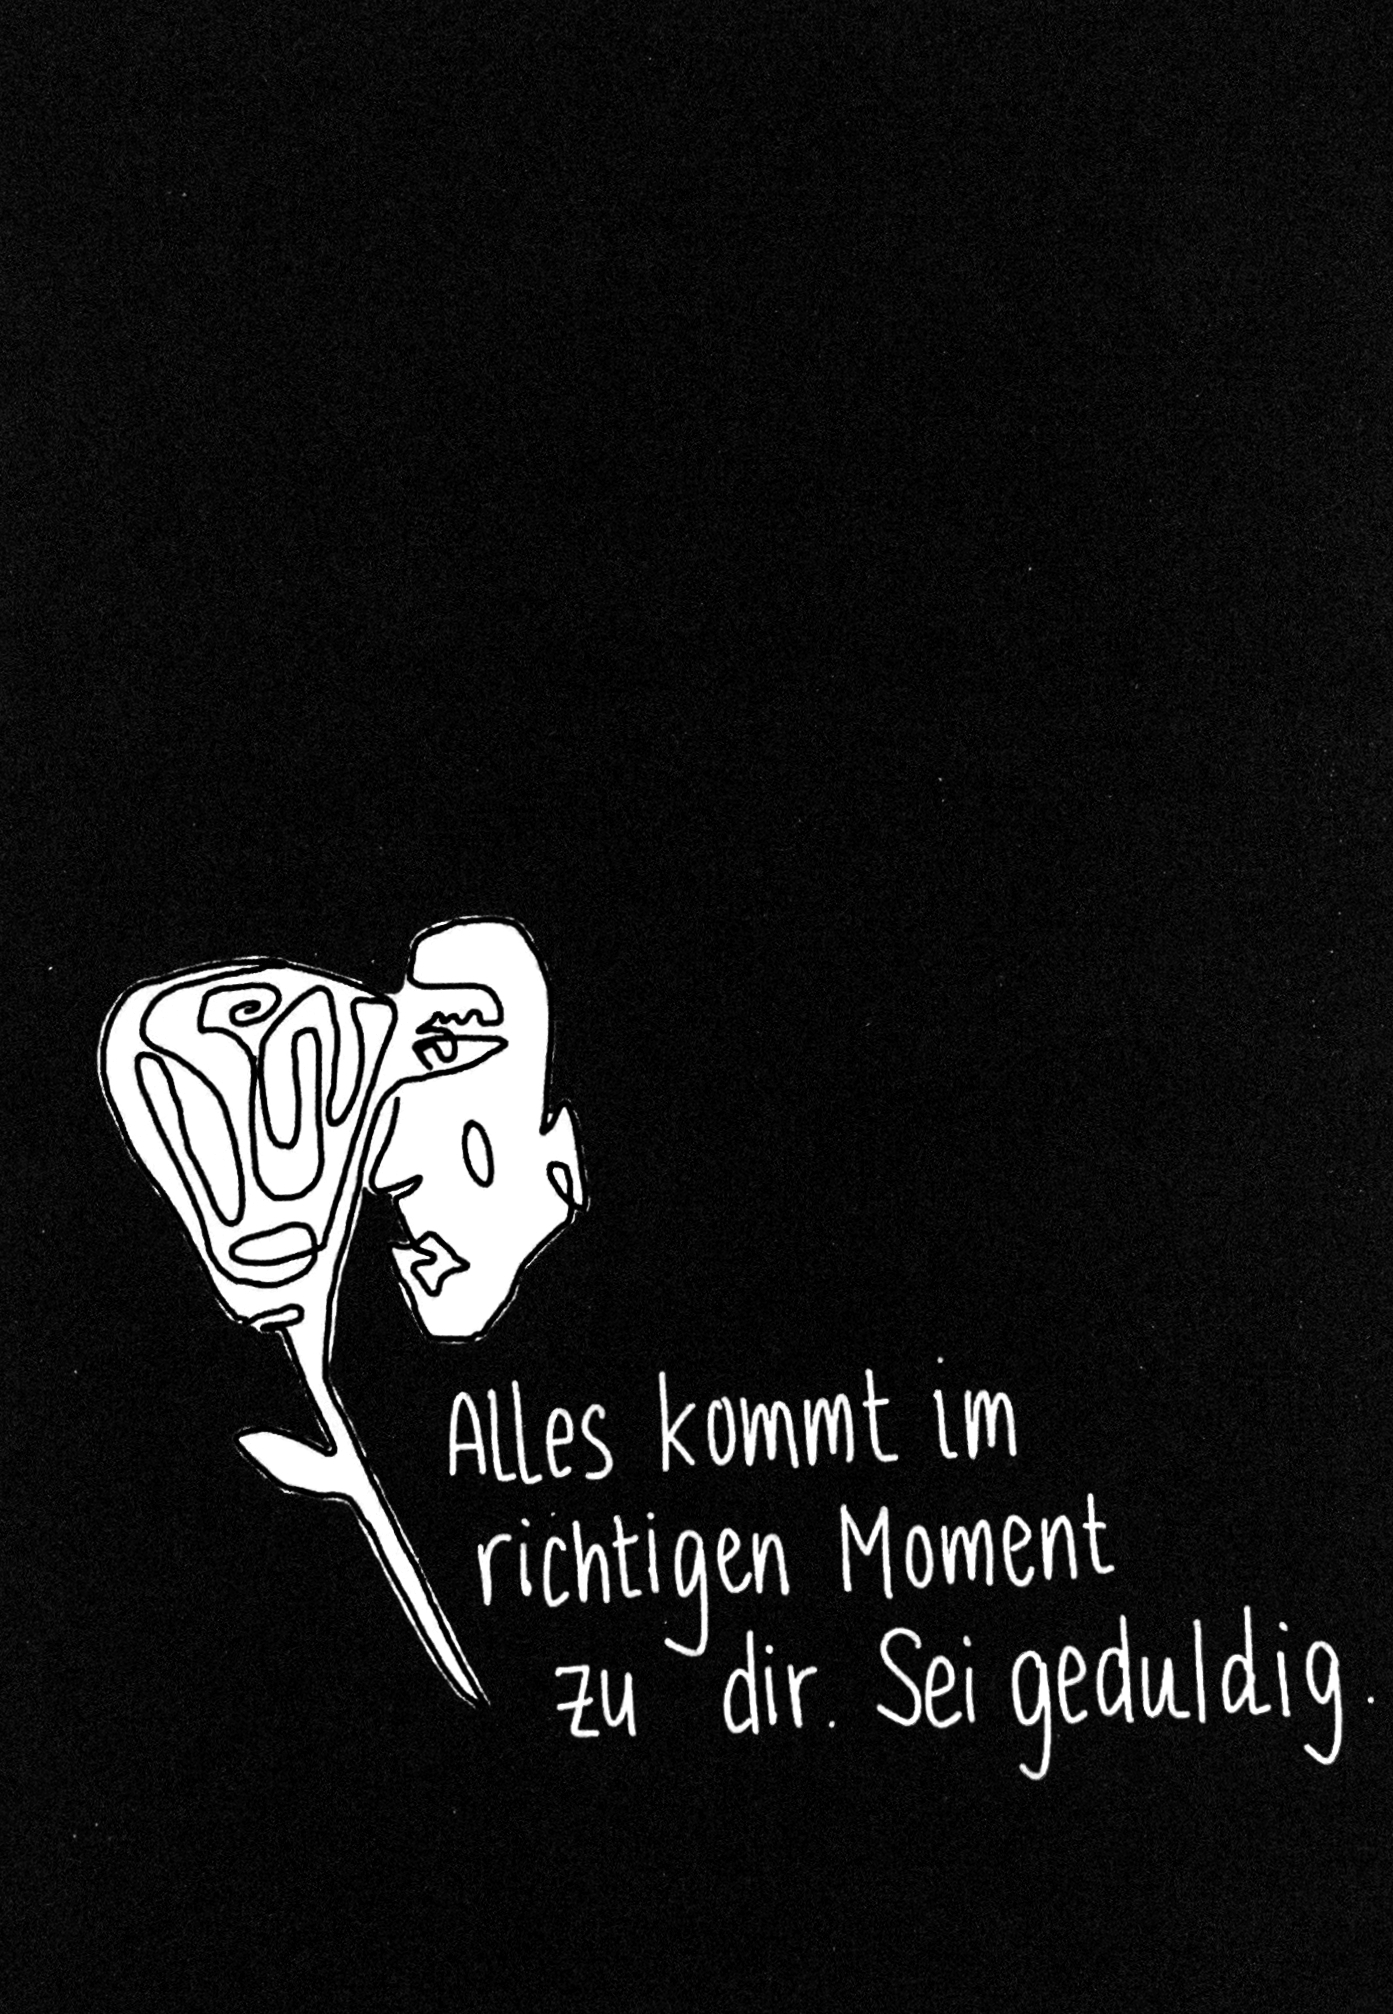 Alles kommt im
richtigen Moment
zu dir. Sei geduldig.